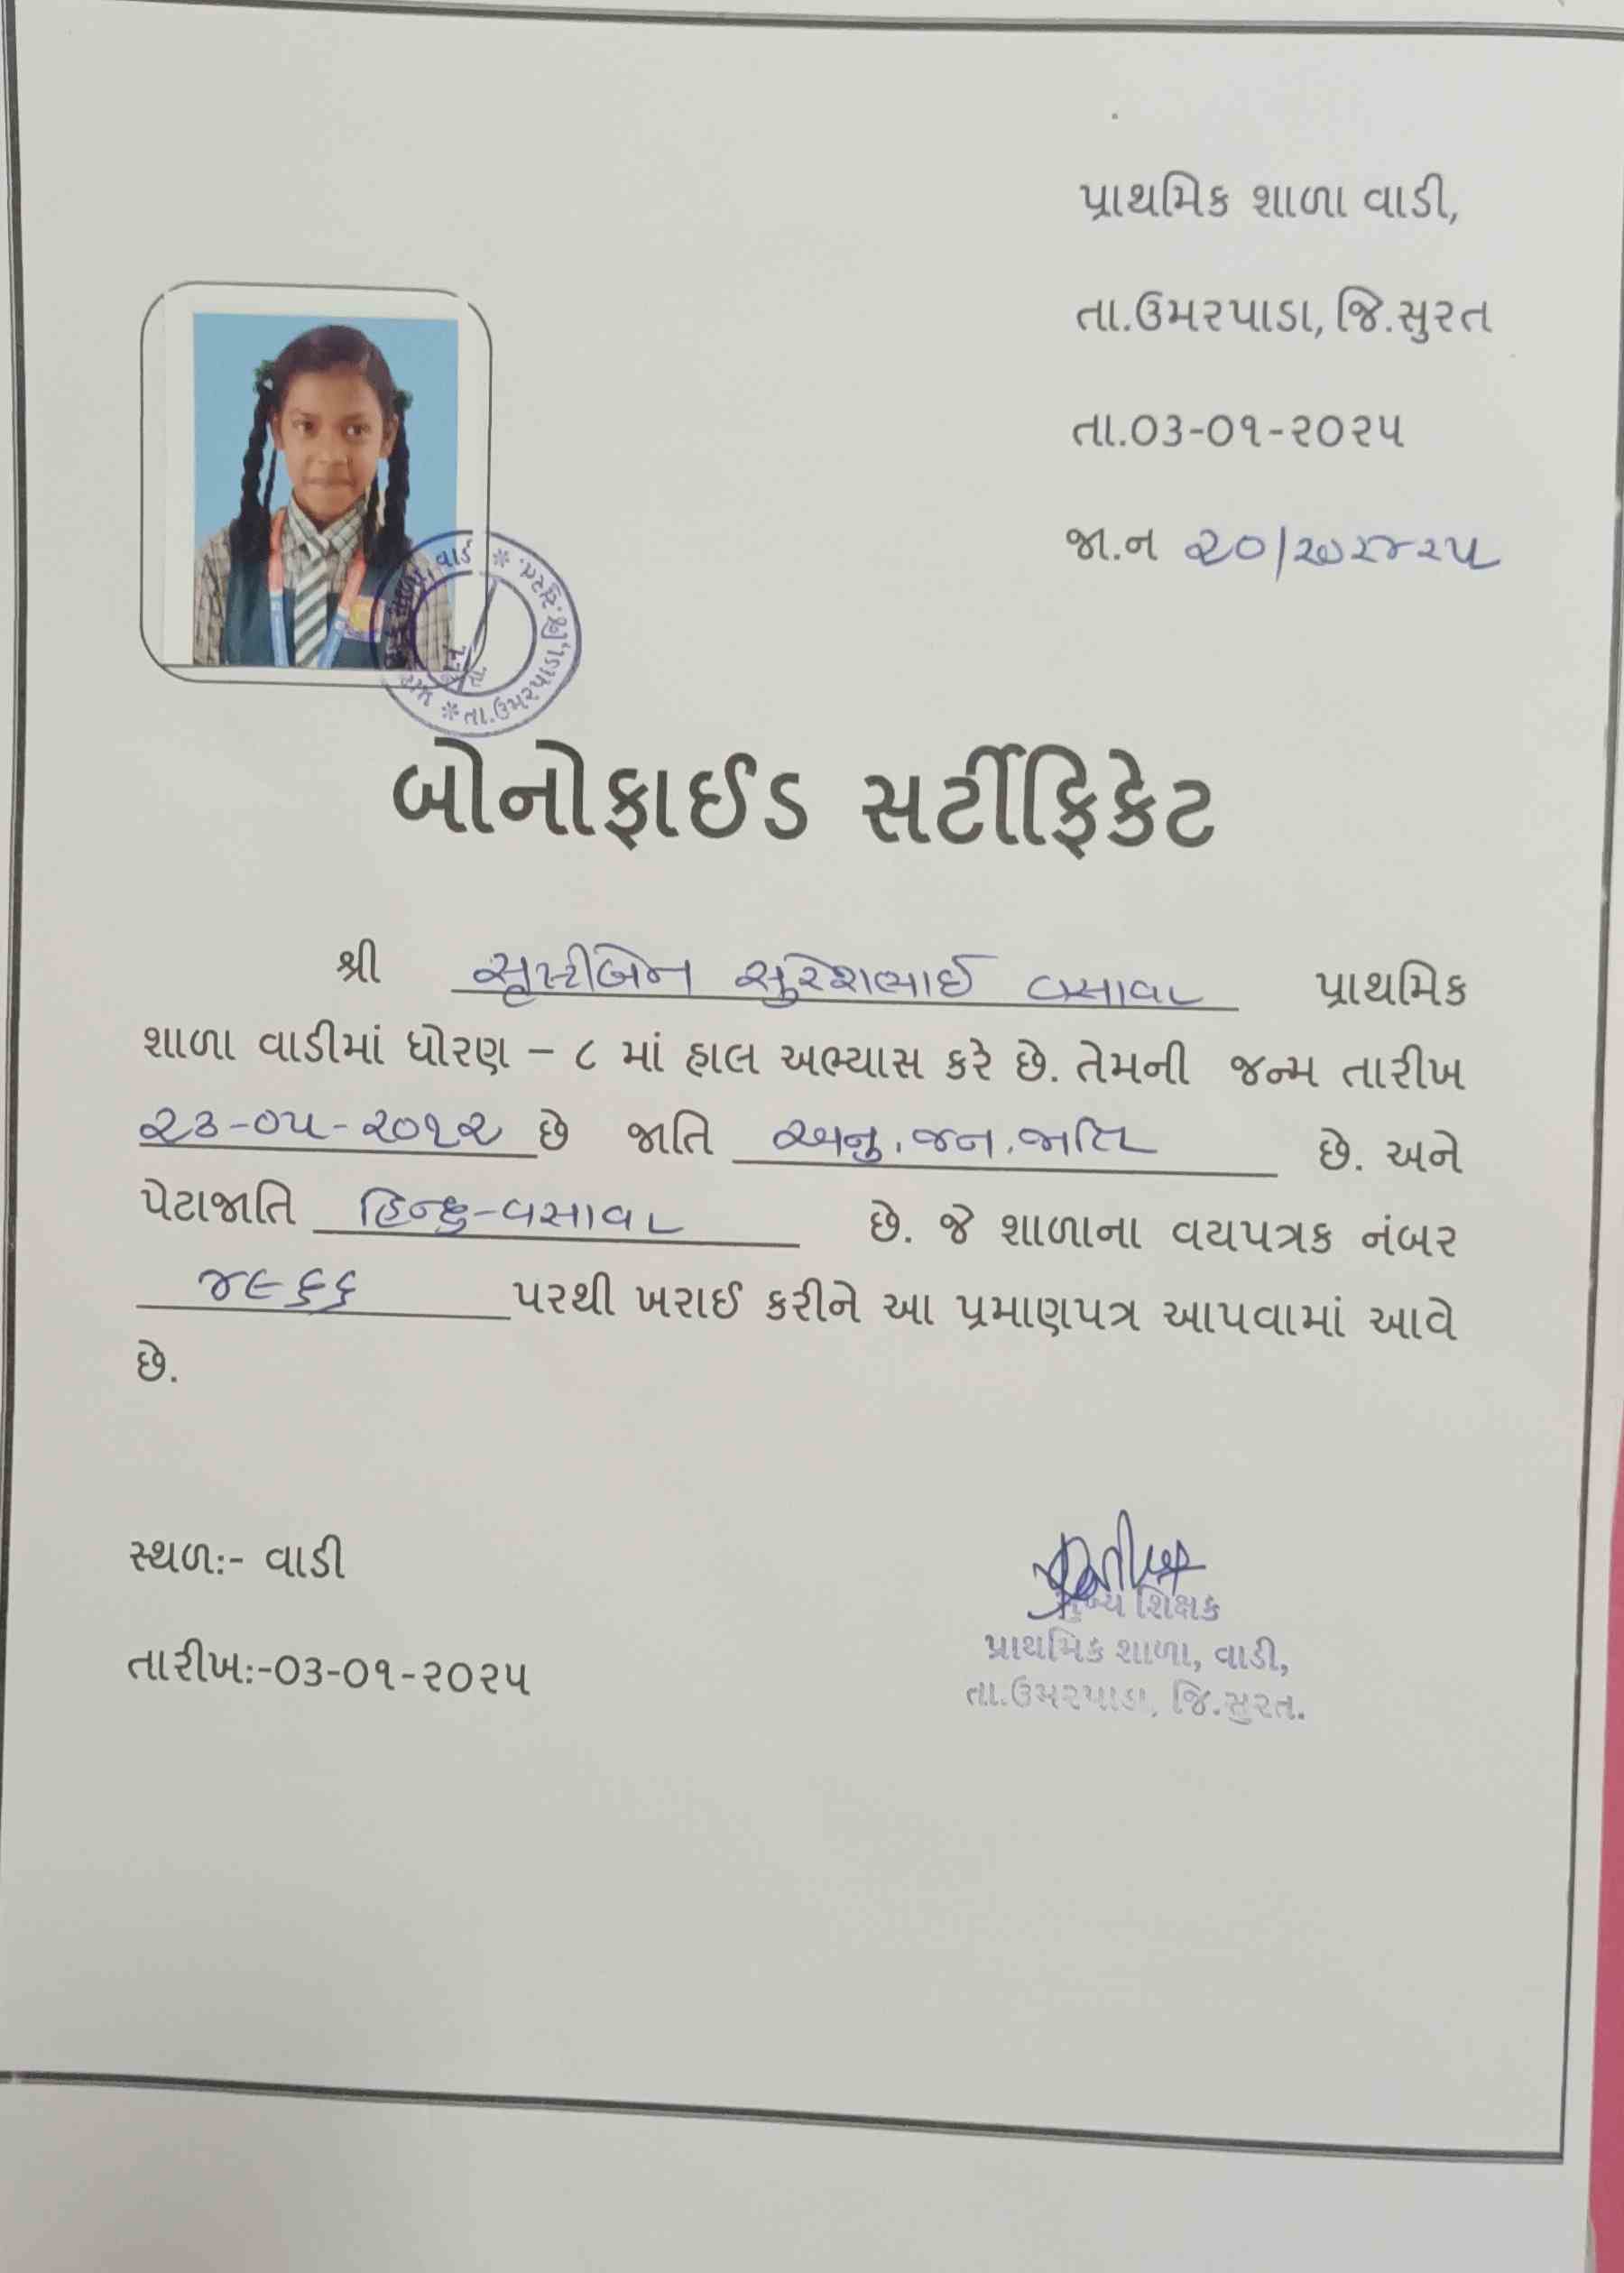 પ્રાથમિક શાળા વાડી,
તા.ઉમરપાડા, જિ.સુરત
તા.૦૩-૦૧-૨૦૨૫
જા.ન ૨૦/૨૦૨૪૨૫
વાડી * તા.ઉમરપાડા,જી.સુરત. *
બોનોફાઈડ સર્ટીફિકેટ
શ્રી સૃષ્ટીબેન સુરેશભાઈ વસાવા પ્રાથમિક
શાળા વાડીમાં ધોરણ – ૮ માં હાલ અભ્યાસ કરે છે. તેમની જન્મ તારીખ
૨૩-૦૫-૨૦૧૨ છે જાતિ અનુ.જન.જાતિ છે. અને
પેટાજાતિ હિન્દુ-વસાવા છે. જે શાળાના વયપત્રક નંબર
૪૯૬૬ પરથી ખરાઈ કરીને આ પ્રમાણપત્ર આપવામાં આવે
છે.
સ્થળ:- વાડી
તારીખ:-૦૩-૦૧-૨૦૨૫
મુખ્ય શિક્ષક
પ્રાથમિક શાળા, વાડી,
તા.ઉમરપાડા, જિ.સુરત.